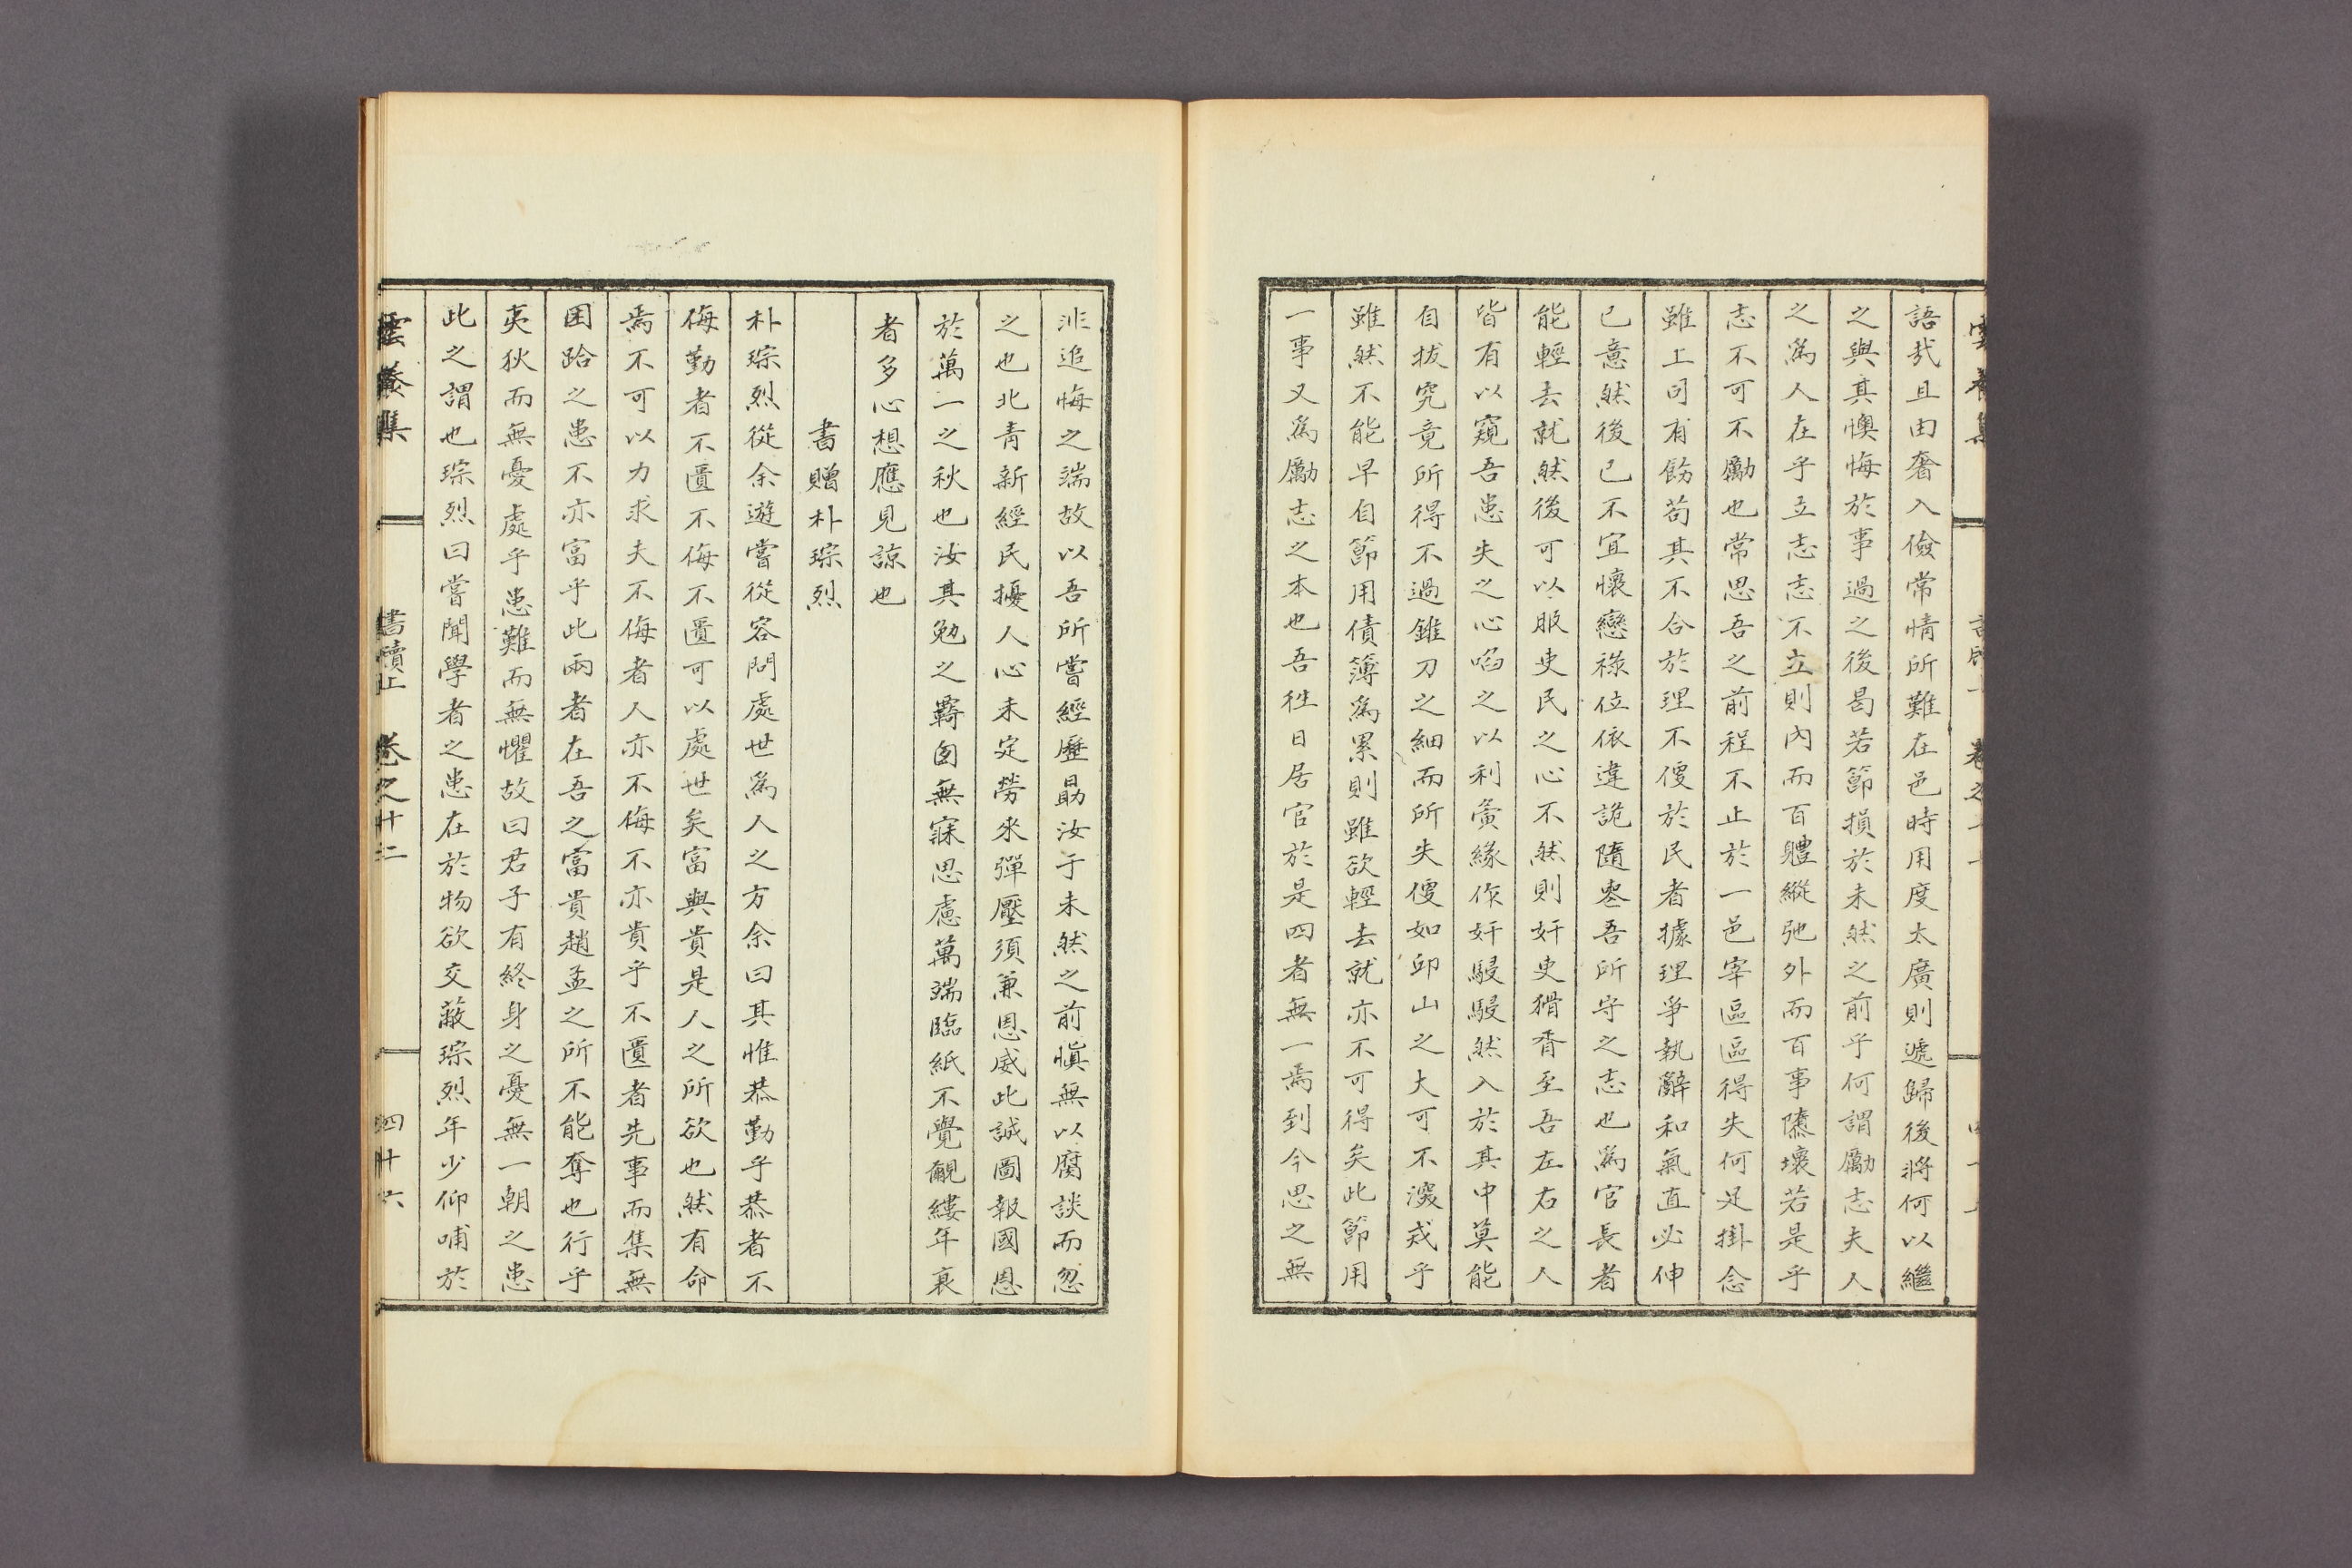 語哉且由奢入儉常情所難在邑時用度太廣則遞歸後將何以繼
之與其懊悔於事過之後曷若節損於未然之前乎何謂勵志夫人
之爲人在乎立志志不立則內而百軆縱弛外而百事隳壞若是乎
志不可不勵也常思吾之前程不止於一邑宰區區得失何足掛念
雖上司有飭苟其不合於理不便於民者據理爭執辭和氣直必伸
已意然後已不宜懷戀祿位依違詭隨喪吾所守之志也爲官長者
能輕去就然後可以服吏民之心不然則奸吏猾胥至吾左右之人
皆有以窺吾患失之心啗之以利夤緣作奸駸駸然入於其中莫能
自拔究竟所得不過錐刀之細而所失便如邱山之大可不深戒乎
雖然不能早自節用債簿爲累則雖欲輕去就亦不可得矣此節用
一事又爲勵志之本也吾徃日居官於是四者無一焉到今思之無
非追悔之端故以吾所嘗經歷勗汝于未然之前愼無以腐談而忽
之也北靑新經民擾人心未定勞來彈壓須兼恩威此誠圖報國恩
於萬一之秋也汝其勉之羇囱無寐思慮萬端臨紙不覺覼縷年衰
者多心想應見諒也
書贈朴琮烈
朴琮烈從余遊嘗從容問處世爲人之方余曰其惟恭勤乎恭者不
侮勤者不匱不侮不匱可以處世矣富與貴是人之所欲也然有命
焉不可以力求夫不侮者人亦不侮不亦貴乎不匱者先事而集無
困跲之患不亦富乎此兩者在吾之富貴趙孟之所不能奪也行乎
夷狄而無憂處乎患難而無懼故曰君子有終身之憂無一朝之患
此之謂也琮烈曰嘗聞學者之患在於物欲交蔽琮烈年少仰哺於
雲養集 書牘上 卷之十二 四十六